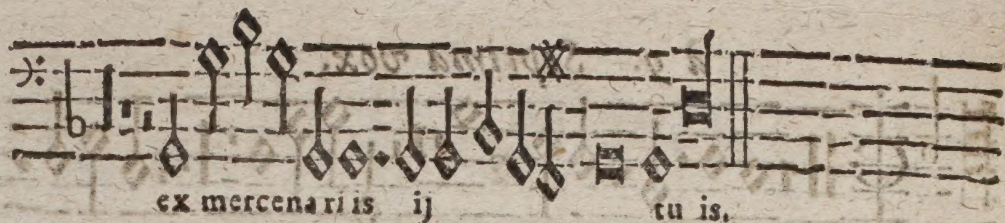 ex mercenariis ij tu is,